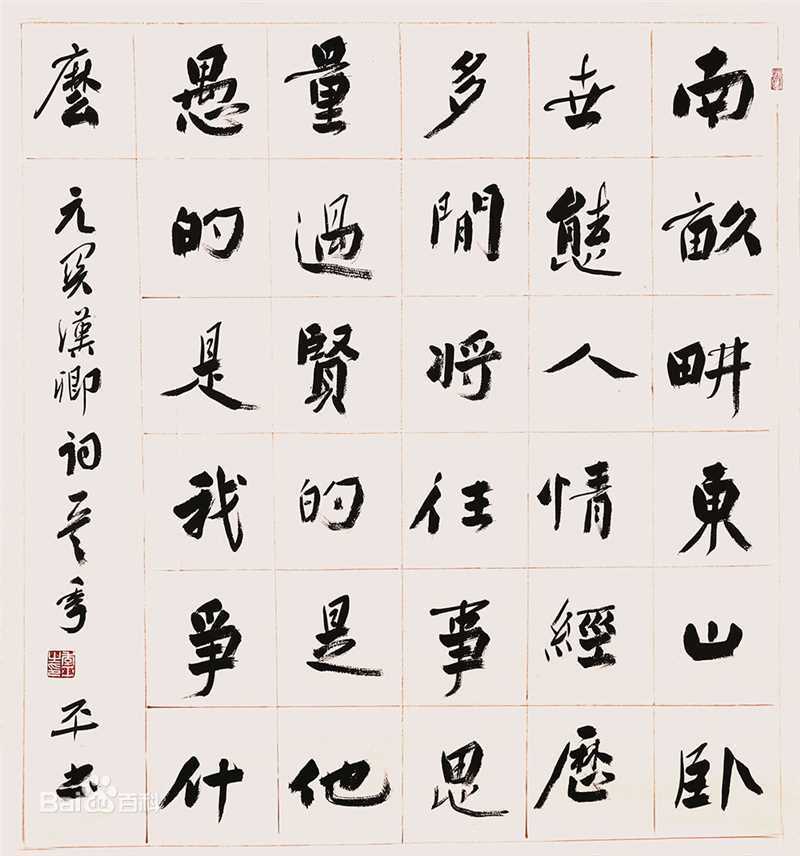 南畝畊東山卧
世態人情經歷
多閒將往事思
量過賢的是他
愚的是我爭什
麼
元関漢卿詞
平書
Bai百科